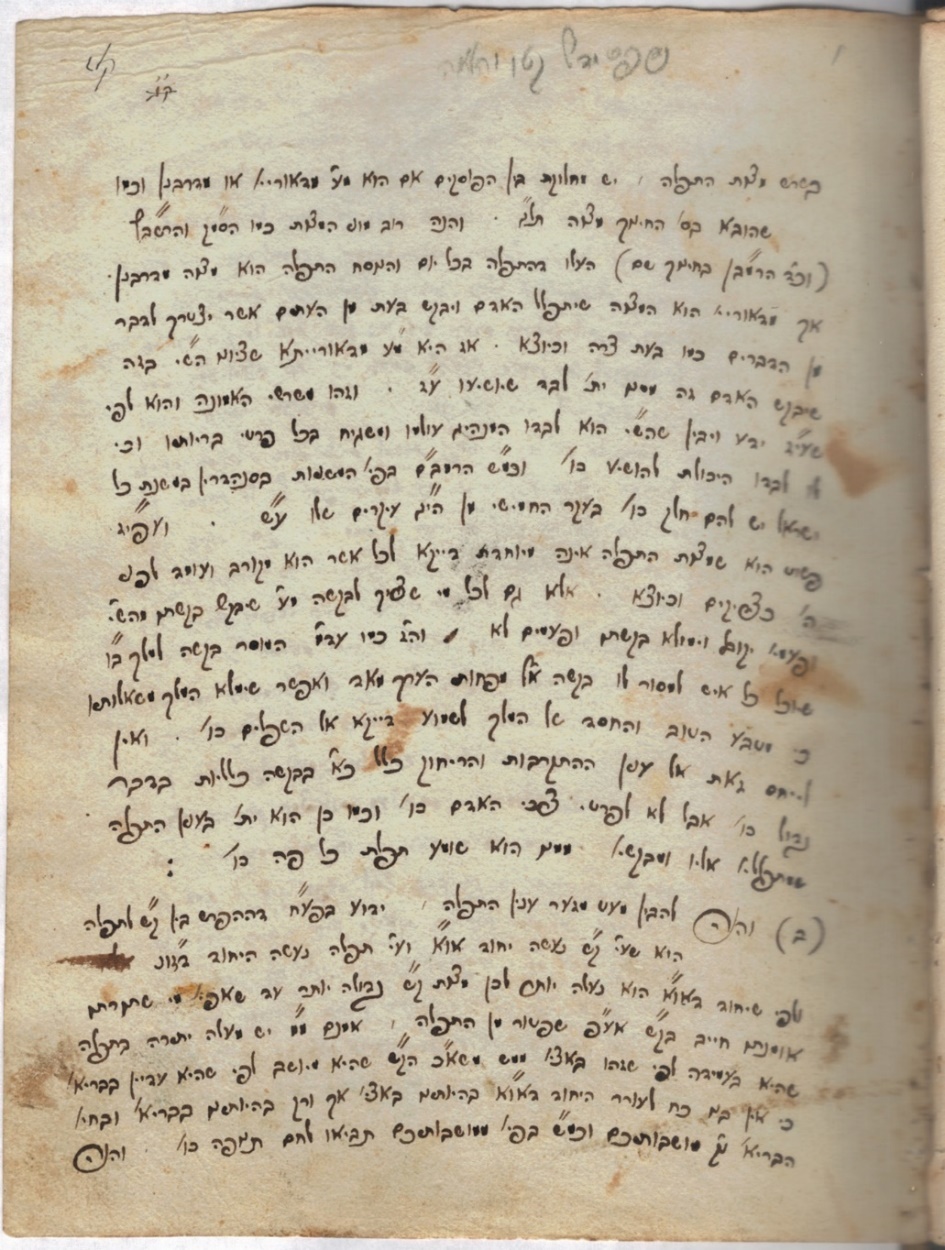 בשרש מצות התפלה , יש מחלוקת בין הפוסקים אם הוא מ״ע מדאוריי׳ או מדרבנן וכמו
שהובא בס׳ החינוך מצוה תל״ג . והנה רוב מוני המצות כמו הסמ״ק והרשב״ץ
(וכ״ד הרמב״ן בחינוך שם) העלו דהתפלה בכל יום והנוסח התפלה הוא מצוה מדרבנן .
אך מדאוריי׳ הוא המצוה שיתפלל האדם ויבקש בעת מן העתים אשר יצטרך לדבר
מן הדברים כמו בעת צרה וכיוצא . אז היא מ״ע מדאורייתא שציוה הש״י בזה
שיבקש האדם זה ממנו ית׳ לבד שיושיעו ע״ז . וזהו משרשי האמונה והוא לפי
שעי״ז ידע ויבין שהש״י הוא לבדו המנהיג עולמו ומשגיח בכל פרטי בריותיו וכי
לו לבדו היכולת להושיע כו׳ וכמ״ש הרמב״ם בפי׳ המשניות בסנהדרין במשנת כל
ישראל יש להם חלק כו׳ בעקר החמישי מן הי״ג עיקרים שלו ע״ש . ועפי״ז
פשוט הוא שמצות התפלה אינה מיוחדת דייקא לכל אשר הוא מקורב ועומד לפני
ה׳ כצדיקים וכיוצא . אלא גם לכל מי שצריך לבקשה מ״ע שיבקש בקשתו מהש״י
ופעמי׳ יקובל וימולא בקשתו ופעמים לא והז״ כמו עד״מ המוסר בקשה למלך בו״
שיוכל כל איש למסור לו בקשה אף מפחות הערך מאד ואפשר שימלא המלך משאלותיו
כי מטבע הטוב והחסד של המלך לשמוע דייקא אל השפלים כו׳ . ואין
לייחס זאת אל ענין ההתקרבות והריחוק כלל כ״א בבקשה כלליות בדבר
גדול כו׳ אבל לא לפרטי צרכי האדם כו׳ וכמו כן הוא ית׳ בענין התפלה
שמתפללי׳ אליו ומבקשי׳ ממנו הוא שומע תפלת כל פה כו׳ :
(ב) והנה להבין מעט מזער ענין התפלה , ידוע בפע״ח דההפרש בין ק״ש לתפלה
הוא שע״י ק״ש נעשה יחוד או״א וע״י תפלה נעשה היחוד דזו״נ
ולפי שיחוד דאו״א הוא נעלה יותר לכן מצות ק״ש גדולה יותר עד שאפי׳ מי שתורתם
אומנתם חייב בק״ש אע״פ שפטור מן התפלה , אמנם יש מעלה יתירה בתפלה
שהיא בעמידה לפי שזהו באצי׳ ממש משא״כ הק״ש שהיא מיושב לפי שהיא עדיין בבריא׳
כי אין בנו כח לעורר היחוד דאו״א בהיותם באצי׳ אך ורק בהיותם בבריא׳ ובחי׳
הבריא׳ נק׳ מושבותיכם וכמ״ש בפי׳ ממושבותיכם תביאו לחם תנופה כו׳ . והנה